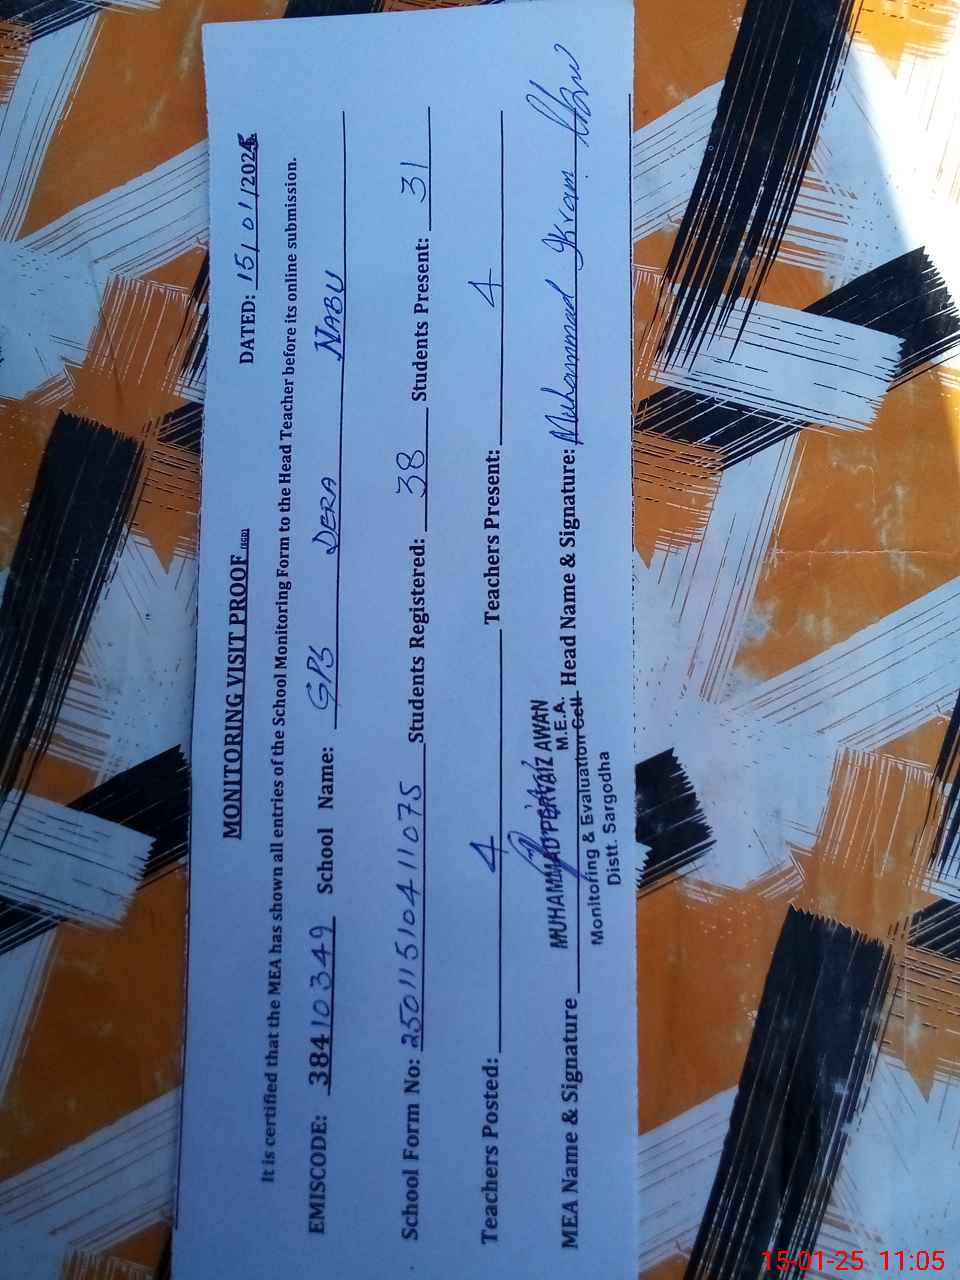 MONITORING VISIT PROOF (SGD) DATED: 15/01/2025
It is certified that the MEA has shown all entries of the School Monitoring Form to the Head Teacher before its online submission.
EMISCODE: 38410349 School Name: GPS DERA NABU
School Form No: 25011510411075 Students Registered: 38 Students Present: 31
Teachers Posted: 4 Teachers Present: 4
MEA Name & Signature MUHAMMAD PERVAIZ AWAN Head Name & Signature: Muhammad Ikram
M.E.A.
Monitoring & Evaluation Cell
Distt. Sargodha
15-01-25 11:05